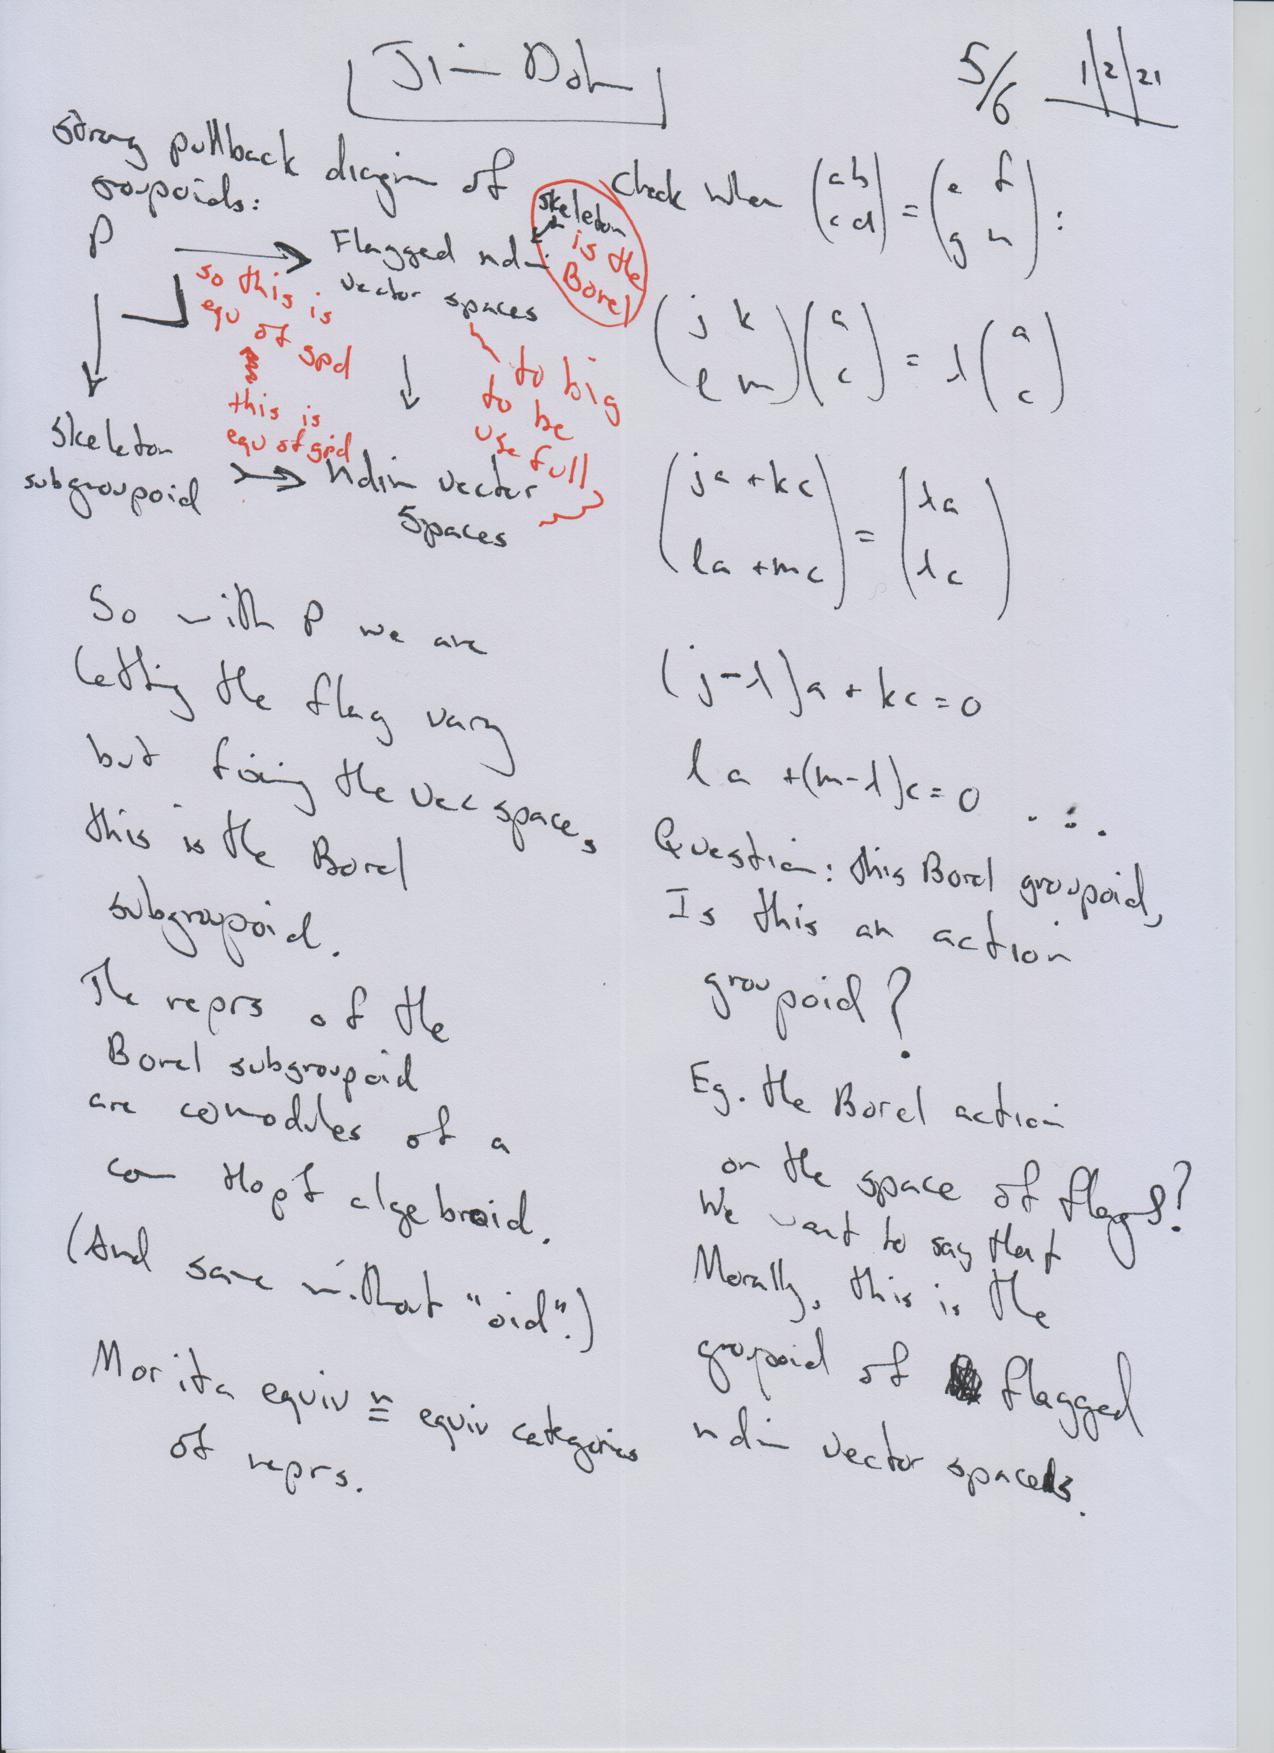 Jim Dol
5/6 1/2/21
strong pullback diagram of
groupoids:
P
Flagged ndim
vector spaces
skeleton
is the
Borel
so this is
equ of gpd
this is
equ of gpd
to big
to be
usefull
skeleton
subgroupoid
ndim vector
spaces
So with P we are
letting the flag vary
but fixing the vec space,
this is the Borel
subgroupoid.
The reprs of the
Borel subgroupoid
are comodules of a
com Hopf algebroid.
(And same without "oid".)
Morita equiv ≅ equiv categories
of reprs.
Check when (a b) = (e f) :
(c d) (g h)
(j k) (a) = λ (a)
(l m) (c) (c)
(ja + kc) = (λa)
(la + mc) (λc)
(j-λ)a + kc = 0
la + (m-λ)c = 0 ...
Question: this Borel groupoid,
Is this an action
groupoid?
Eg. the Borel action
on the space of flags?
We want to say that
Morally, this is the
groupoid of flagged
ndim vector spaces.